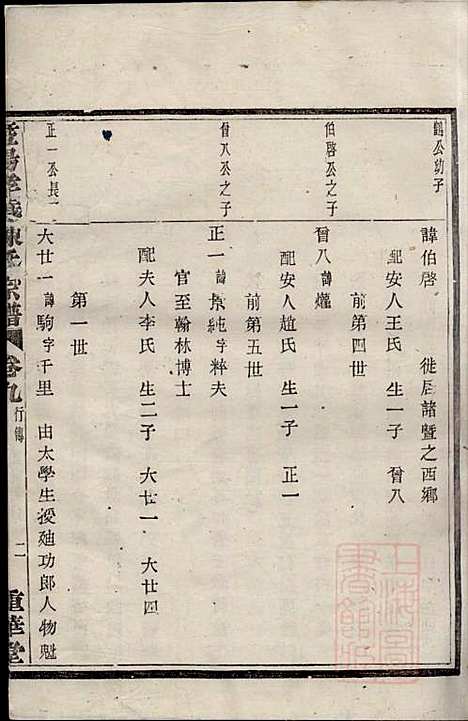 鶴公幼子
諱伯啓 徙居諸暨之西鄉
配安人王氏 生一子 曾八
前第四世
伯啓公之子
曾八諱燿
配安人趙氏 生一子 正一
前第五世
曾八公之子
正一諱 純字粹夫
官至翰林博士
配夫人李氏 生二子 大廿一 大廿四
第一世
正一公長子
大廿一諱駒字千里 由太學生授廸功郎人物魁
暨陽孝義陳氏宗譜 卷九 行傳 二 重華堂